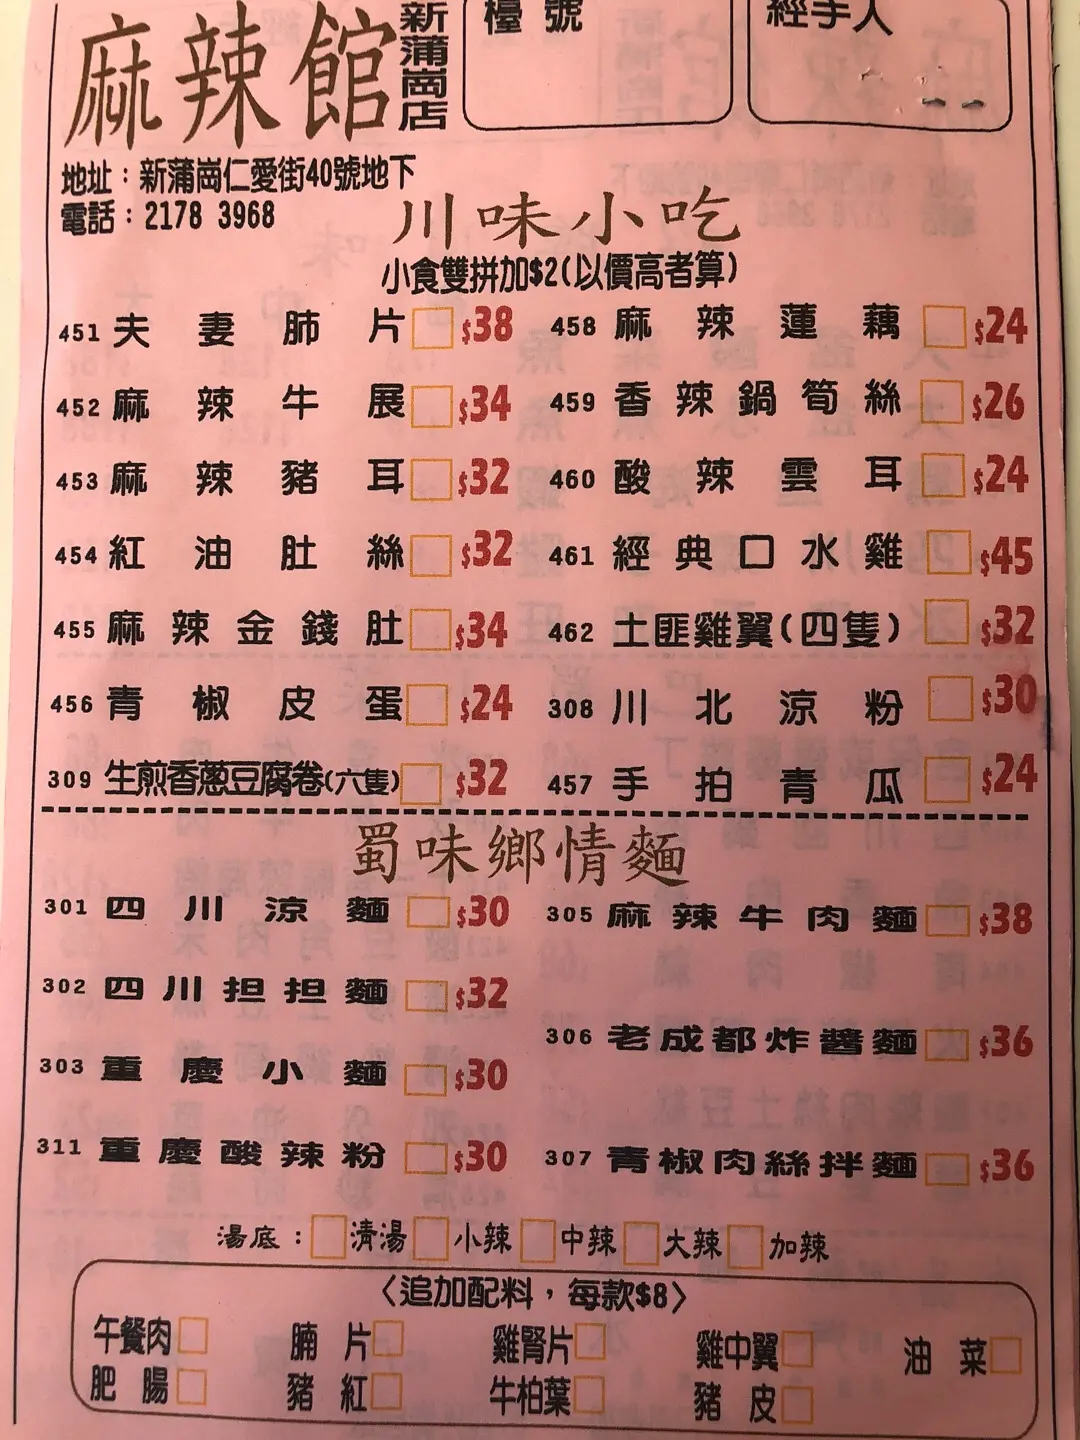 麻辣館 新蒲崗店
檯號
經手人
地址：新蒲崗仁愛街40號地下
電話：2178 3968
川味小吃
小食雙拼加$2(以價高者算)
451 夫妻肺片 $38
458 麻辣蓮藕 $24
452 麻辣牛展 $34
459 香辣鍋筍絲 $26
453 麻辣豬耳 $32
460 酸辣雲耳 $24
454 紅油肚絲 $32
461 經典口水雞 $45
455 麻辣金錢肚 $34
462 土匪雞翼(四隻) $32
456 青椒皮蛋 $24
308 川北涼粉 $30
309 生煎香蔥豆腐卷(六隻) $32
457 手拍青瓜 $24
蜀味鄉情麵
301 四川涼麵 $30
305 麻辣牛肉麵 $38
302 四川担担麵 $32
306 老成都炸醬麵 $36
303 重慶小麵 $30
311 重慶酸辣粉 $30
307 青椒肉絲拌麵 $36
湯底：清湯 小辣 中辣 大辣 加辣
〈追加配料，每款$8〉
午餐肉 腩片 雞腎片 雞中翼 油菜
肥腸 豬紅 牛柏葉 豬皮